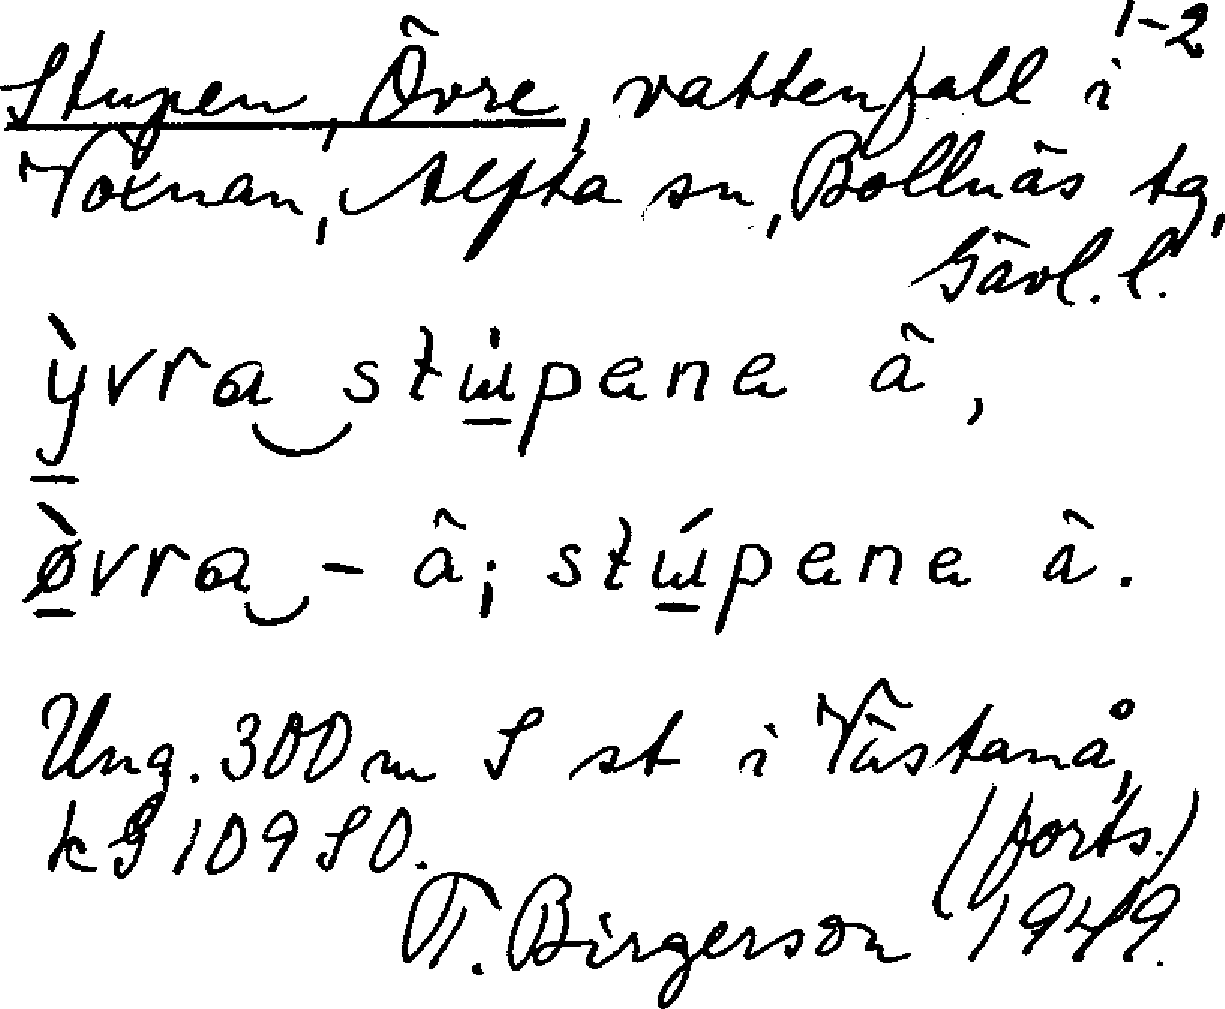 1-2
Stupen, Övre, vattenfall i
Voxnan, Alfta sn, Bollnäs tg,
Gävl. l.
ỳvra stɯ́pena â,
ø̀vra - â; stɯ́pena â.
Ung. 300 m S st i Västanå,
kG 109 SO. (forts.)
T. Birgerson 1949.